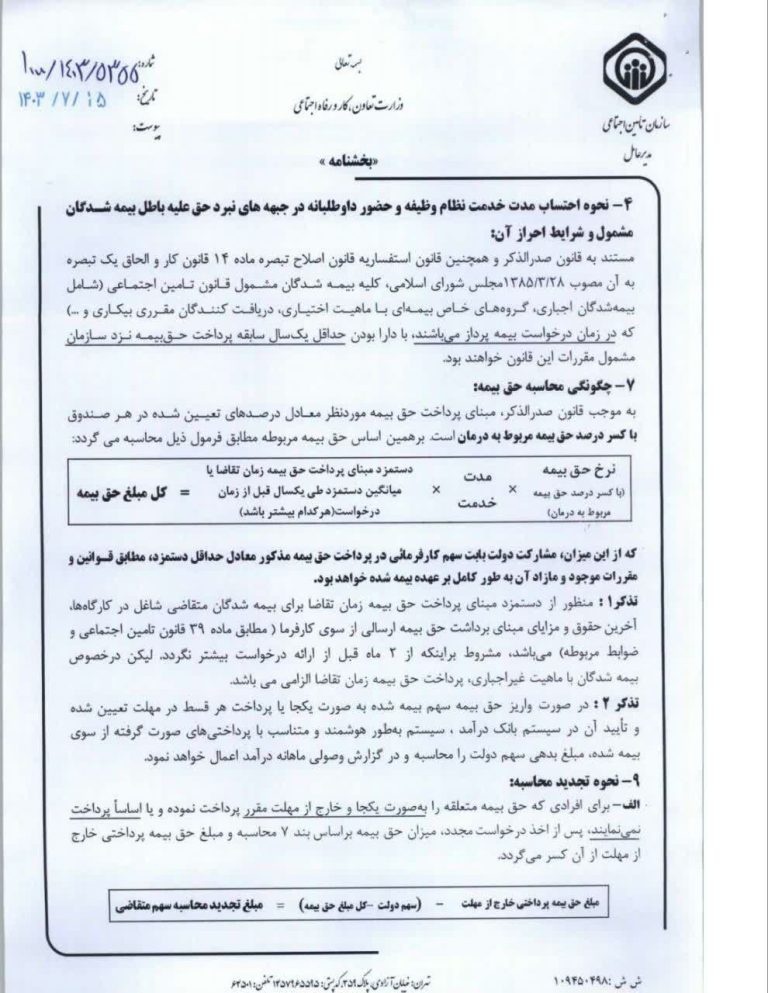 بسمه تعالی
وزارت تعاون، کار و رفاه اجتماعی
سازمان تأمین اجتماعی
مدیرعامل
شماره: ۱۰۰۰/۱۴۰۳/۵۳۵۵
تاریخ: ۱۴۰۳/۷/۱۵
پیوست:
«بخشنامه»
۴- نحوه احتساب مدت خدمت نظام وظیفه و حضور داوطلبانه در جبهه های نبرد حق علیه باطل بیمه شدگان
مشمول و شرایط احراز آن:
مستند به قانون صدرالذکر و همچنین قانون استفساریه قانون اصلاح تبصره ماده ۱۴ قانون کار و الحاق یک تبصره
به آن مصوب ۱۳۸۵/۳/۲۸مجلس شورای اسلامی، کلیه بیمه شدگان مشمول قانون تامین اجتماعی (شامل
بیمه‌شدگان اجباری، گروه‌های خاص بیمه‌ای با ماهیت اختیاری، دریافت کنندگان مقرری بیکاری و ...)
که در زمان درخواست بیمه پرداز می‌باشند، با دارا بودن حداقل یک‌سال سابقه پرداخت حق‌بیمه نزد سازمان
مشمول مقررات این قانون خواهند بود.
۷- چگونگی محاسبه حق بیمه:
به موجب قانون صدرالذکر، مبنای پرداخت حق بیمه موردنظر معادل درصدهای تعیین شده در هر صندوق
با کسر درصد حق بیمه مربوط به درمان است. برهمین اساس حق بیمه مربوطه مطابق فرمول ذیل محاسبه می گردد:
نرخ حق بیمه
(با کسر درصد حق بیمه
مربوط به درمان)
×
مدت
خدمت
×
دستمزد مبنای پرداخت حق بیمه زمان تقاضا یا
میانگین دستمزد طی یکسال قبل از زمان
درخواست(هرکدام بیشتر باشد)
= کل مبلغ حق بیمه
که از این میزان، مشارکت دولت بابت سهم کارفرمائی در پرداخت حق بیمه مذکور معادل حداقل دستمزد، مطابق قوانین و
مقررات موجود و مازاد آن به طور کامل بر عهده بیمه شده خواهد بود.
تذکر۱: منظور از دستمزد مبنای پرداخت حق بیمه زمان تقاضا برای بیمه شدگان متقاضی شاغل در کارگاه‌ها،
آخرین حقوق و مزایای مبنای برداشت حق بیمه ارسالی از سوی کارفرما ( مطابق ماده ۳۹ قانون تامین اجتماعی و
ضوابط مربوطه) می‌باشد، مشروط براینکه از ۲ ماه قبل از ارائه درخواست بیشتر نگردد. لیکن درخصوص
بیمه شدگان با ماهیت غیراجباری، پرداخت حق بیمه زمان تقاضا الزامی می باشد.
تذکر ۲: در صورت واریز حق بیمه سهم بیمه شده به صورت یکجا یا پرداخت هر قسط در مهلت تعیین شده
و تأیید آن در سیستم بانک درآمد ، سیستم به‌طور هوشمند و متناسب با پرداختی‌های صورت گرفته از سوی
بیمه شده، مبلغ بدهی سهم دولت را محاسبه و در گزارش وصولی ماهانه درآمد اعمال خواهد نمود.
۹- نحوه تجدید محاسبه:
الف- برای افرادی که حق بیمه متعلقه را به‌صورت یکجا و خارج از مهلت مقرر پرداخت نموده و یا اساساً پرداخت
نمی‌نمایند، پس از اخذ درخواست مجدد، میزان حق بیمه براساس بند ۷ محاسبه و مبلغ حق بیمه پرداختی خارج
از مهلت از آن کسر می‌گردد.
مبلغ حق بیمه پرداختی خارج از مهلت - (سهم دولت -کل مبلغ حق بیمه) = مبلغ تجدید محاسبه سهم متقاضی
ش ش :۱۰۹۴۵۰۴۹۸
تهران: خیابان آزادی، پلاک ۳۵۹، کدپستی: ۱۴۵۷۹۶۵۵۹۵ تلفن: ۶۴۵۰۱